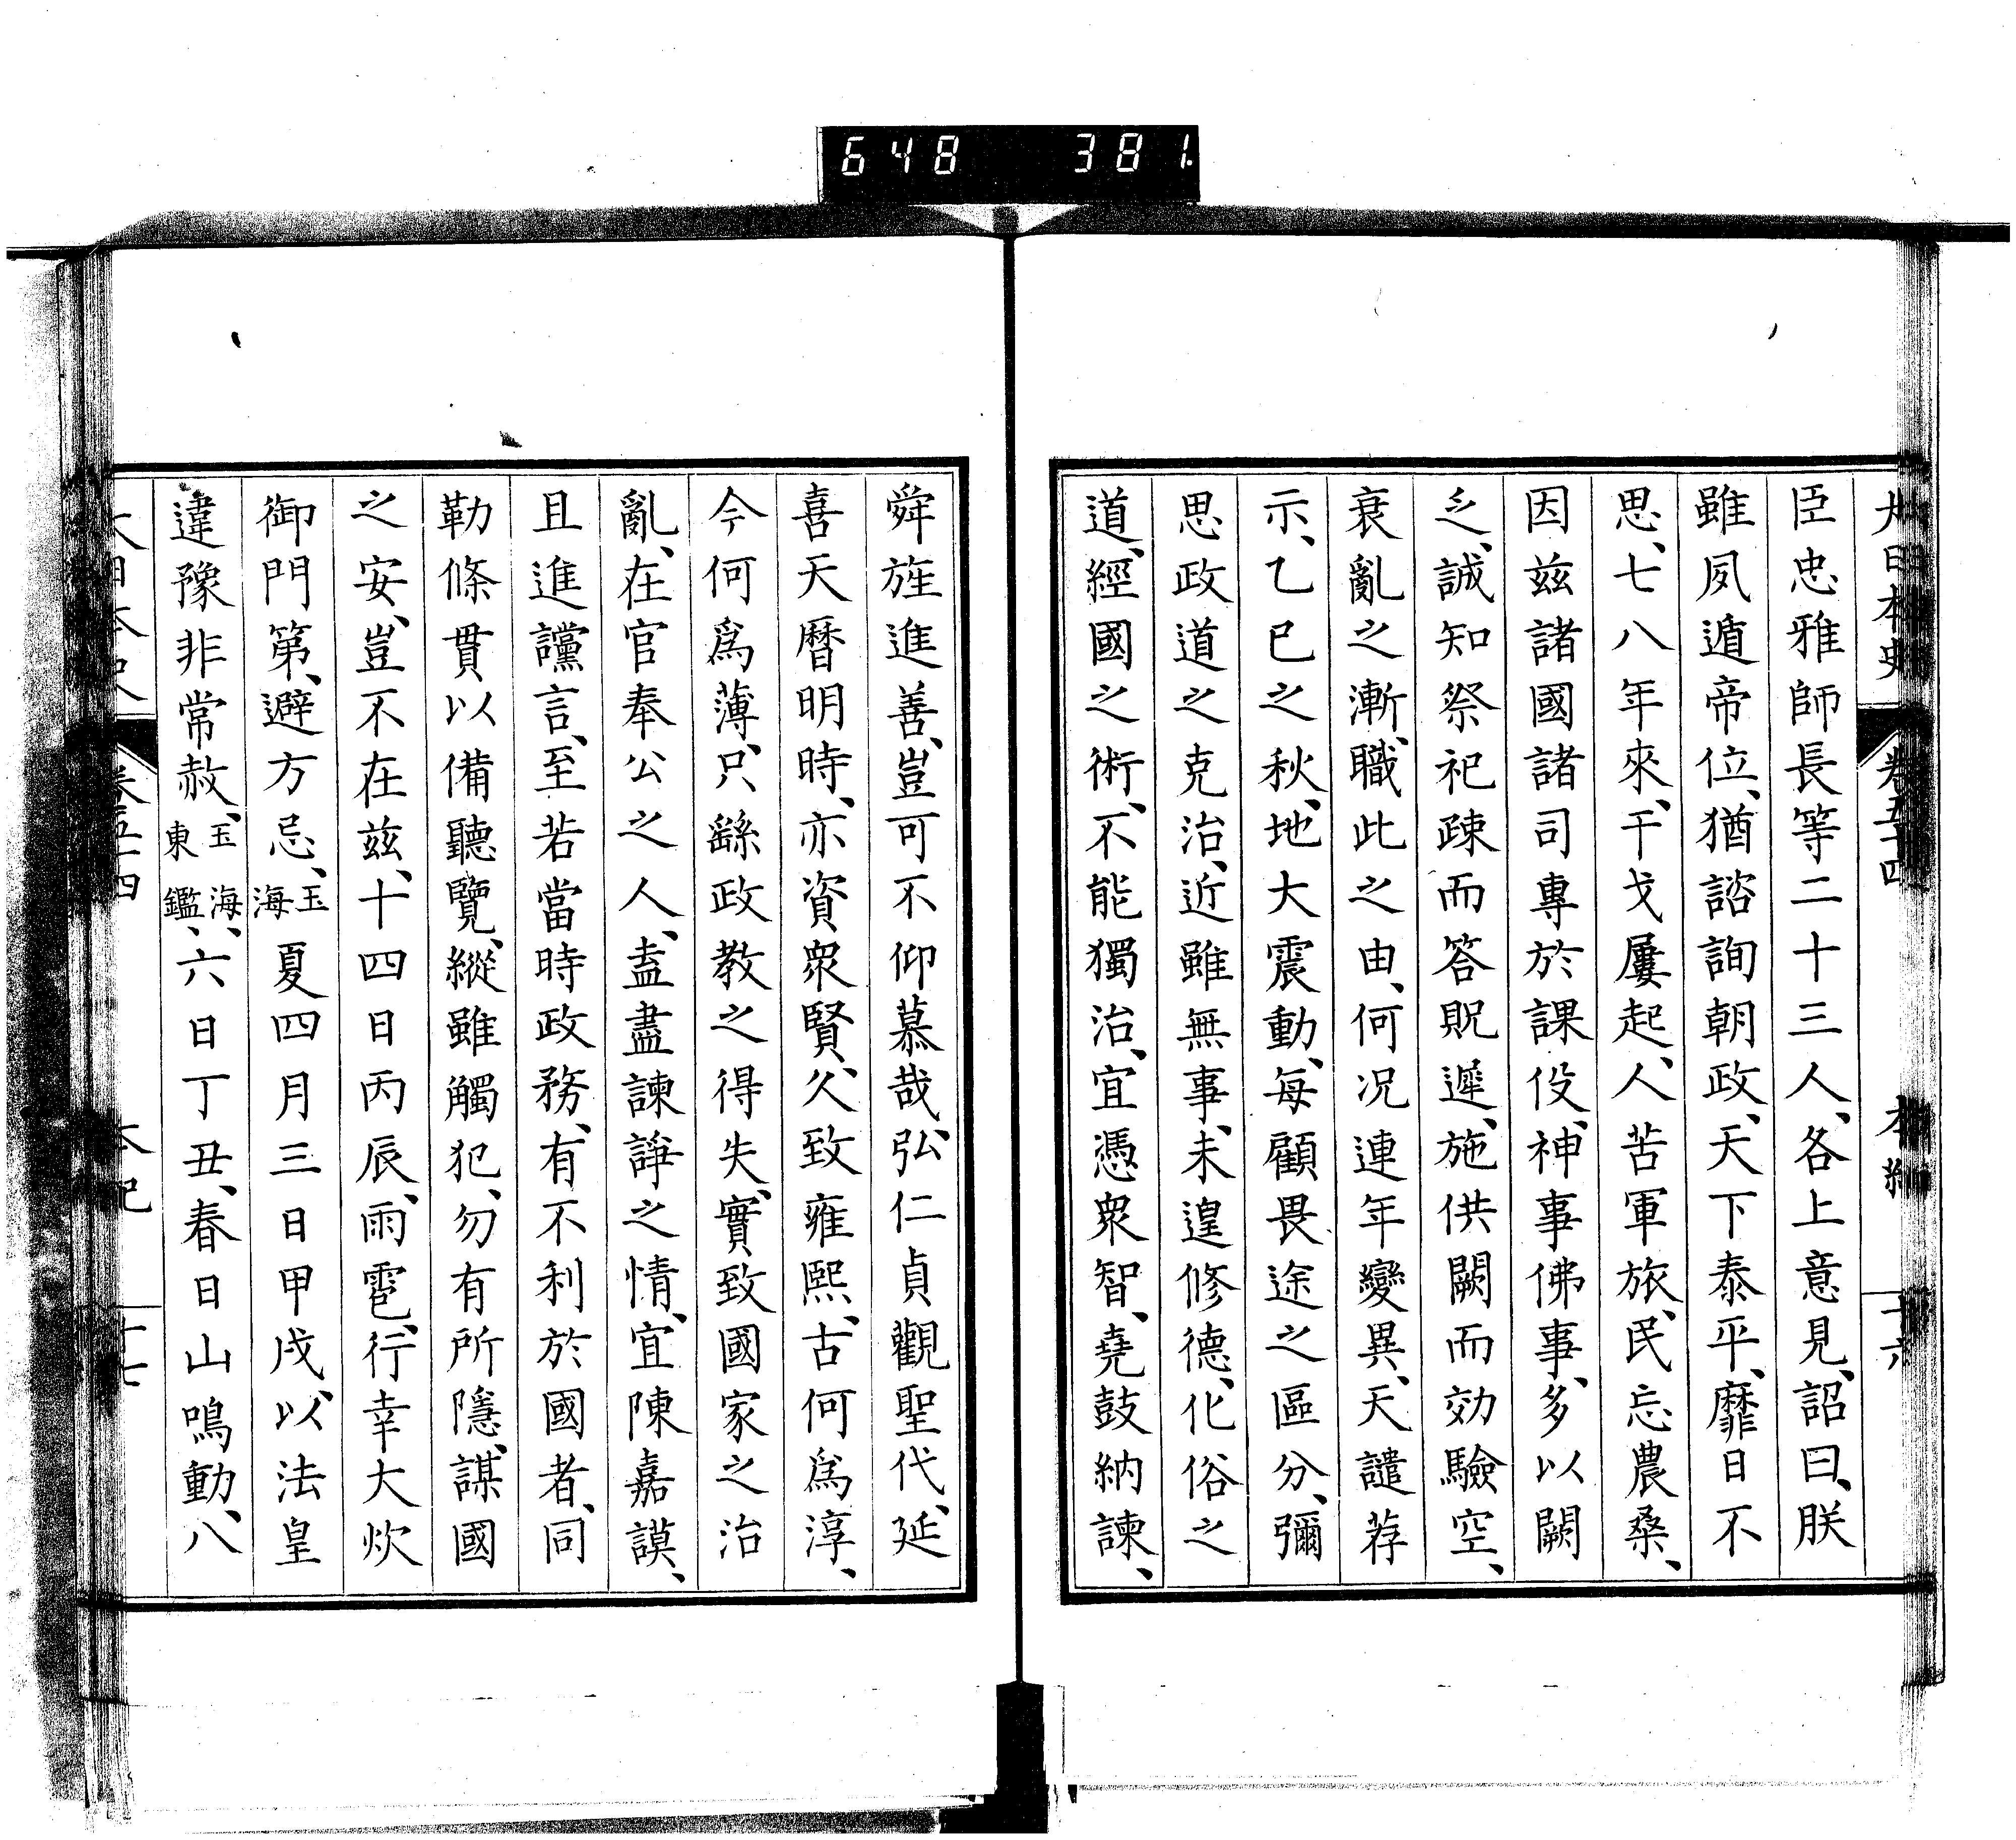 648 381.
大日本史 卷五十四 本紀 十六
臣忠雅師長等二十三人、各上意見、詔曰、朕
雖夙遁帝位、猶諮詢朝政、天下泰平、靡日不
思、七八年來、干戈屢起、人苦軍旅、民忘農桑、
因茲諸國諸司專於課役、神事佛事、多以闕
乏、誠知祭祀疎而答貺遲、施供闕而効驗空、
衰亂之漸、職此之由、何況連年變異、天譴荐
示、乙巳之秋、地大震動、每顧畏途之區分、彌
思政道之克治、近雖無事、未遑修德、化俗之
道、經國之術、不能獨治、宜憑衆智、堯鼓納諫、
舜旌進善、豈可不仰慕哉、弘仁貞觀聖代、延
喜天曆明時、亦資衆賢、久致雍熙、古何爲淳、
今何爲薄、只繇政教之得失、實致國家之治
亂、在官奉公之人、盍盡諫諍之情、宜陳嘉謨、
且進讜言、至若當時政務、有不利於國者、同
勒條貫以備聽覽、縱雖觸犯、勿有所隱、謀國
之安、豈不在茲、十四日丙辰、雨雹、行幸大炊
御門第、避方忌、玉海夏四月三日甲戌、以法皇
違豫非常赦、玉海、東鑑、六日丁丑、春日山鳴動、八
大日本史 卷五十四 本紀 十七